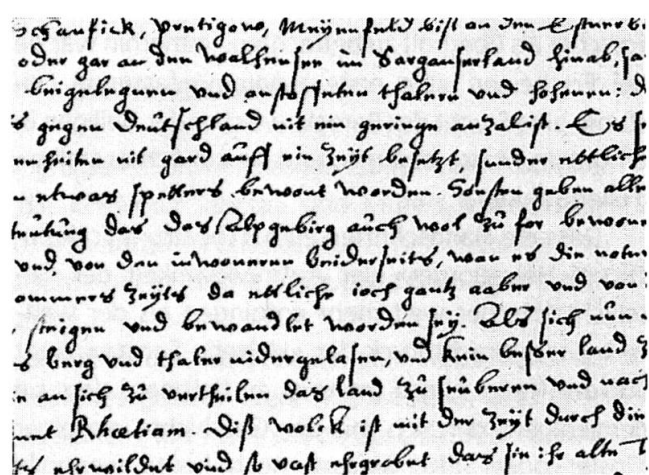 Schanfick, Pretigow, Meyenfeld biß an den Estner
oder gar an den Walhensee im Sarganserland hinab,
beigelegnen und anstossenten thälern und hohenen:
gegen Deütschland nit ein geringe anzal ist. Es
nit gard auff ein Zeyt besetzt, sunder ettliche
etwas spetters bewont worden. Sonsten geben alle
das das Alpgebirg auch wol zů for bewonet
und von den inwoneren beiderseits, wan es die notur
ommers Zeyts da ettliche ioch gantz aaber und von
stiegen und bewandlet worden sey. Als sich nůn
berg und thäler nidergelasen, und kein besser land
an sich zů vertheilen das land zů seüberen und nach
Rhætiam. Diß volck ist mit der Zeyt durch die
ehrwildet und so vast ehrgrobet das sie ihr alte